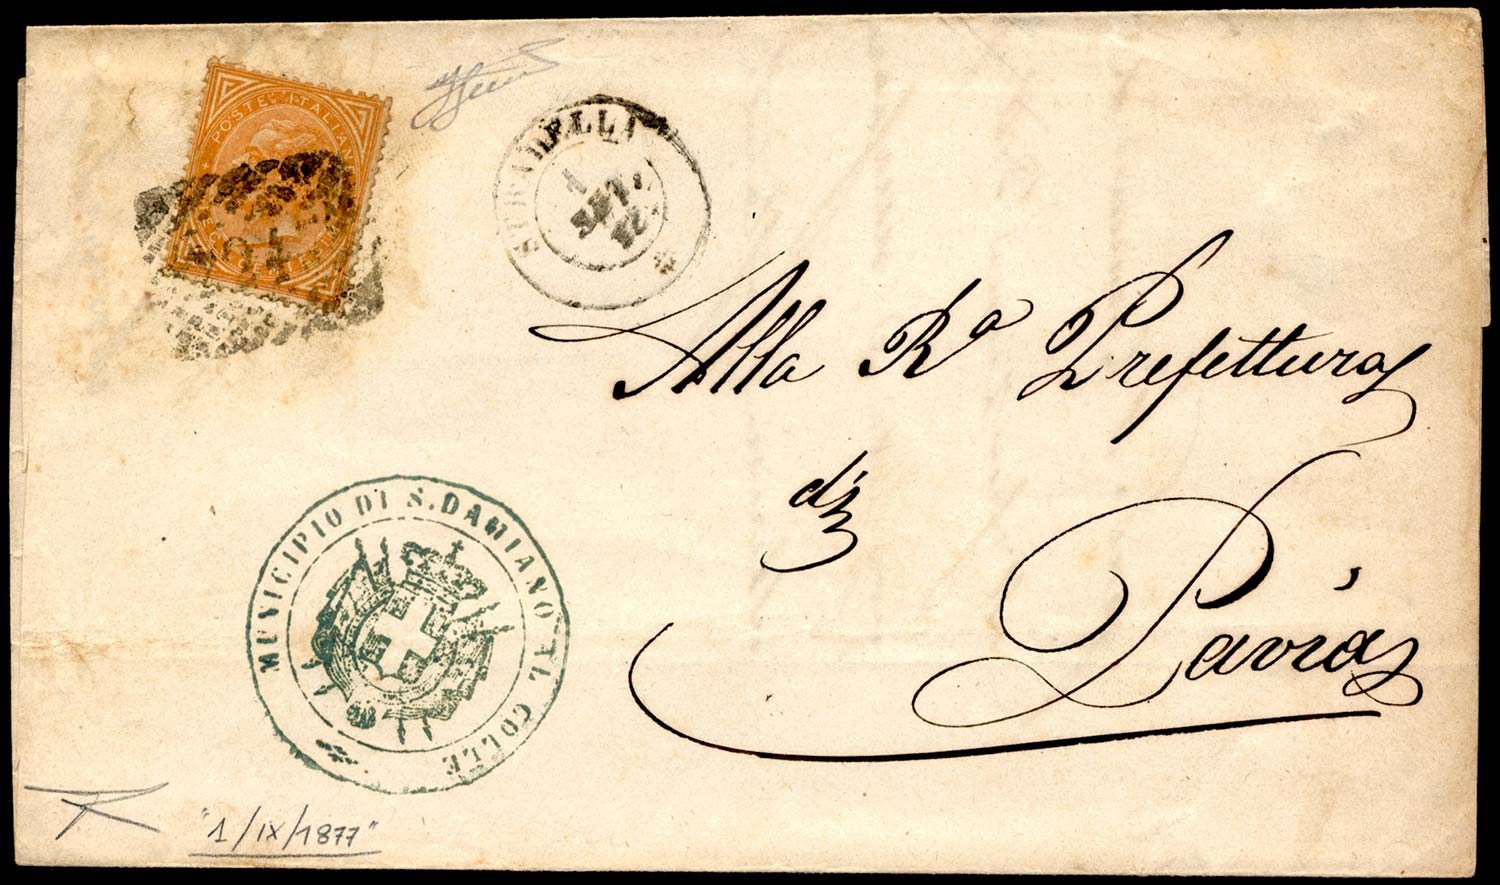 POSTE ITALIANE
STRADELLA
1
SET.
Alla R.a Prefettura
di
Pavia
MUNICIPIO DI S. DAMIANO AL COLLE
"1/IX/1877"